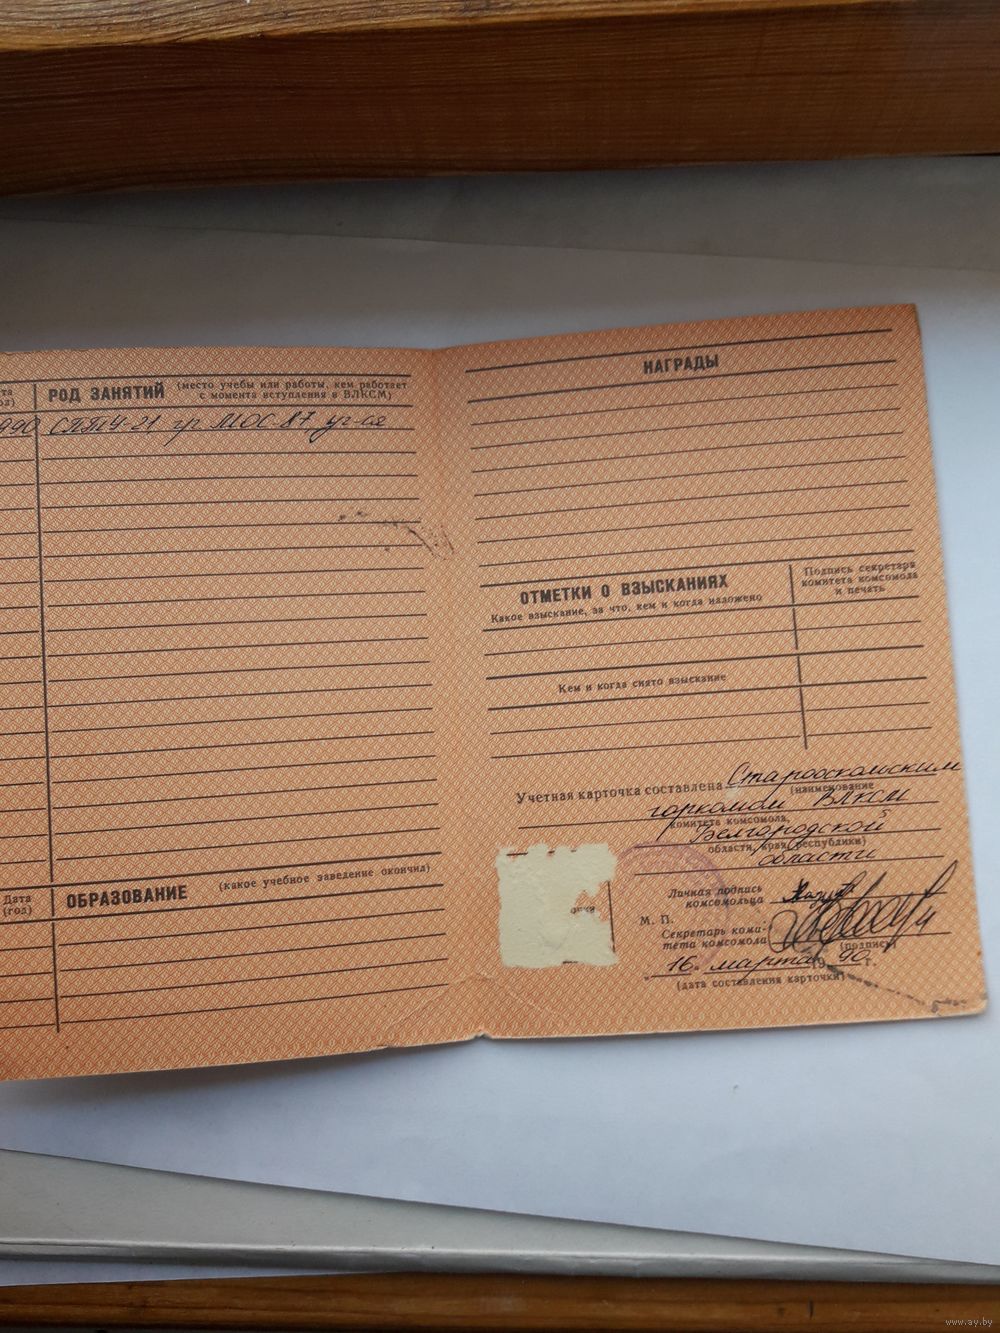 та
ол)
РОД ЗАНЯТИЙ
(место учебы или работы, кем работает
с момента вступления в ВЛКСМ)
990
СПТУ-21 гр МОС-87, уч-ся
Дата
(год)
ОБРАЗОВАНИЕ
(какое учебное заведение окончил)
НАГРАДЫ
ОТМЕТКИ О ВЗЫСКАНИЯХ
Какое взыскание, за что, кем и когда наложено
Подпись секретаря
комитета комсомола
и печать
Кем и когда снято взыскание
Учетная карточка составлена Старооскольским
(наименование
горкомом ВЛКСМ
комитета комсомола,
Белгородской
области, края, республики)
области
Личная подпись
комсомольца
М. П.
Секретарь коми-
тета комсомола
(подпись)
16. марта 1990 г.
(дата составления карточки)
www.ay.by